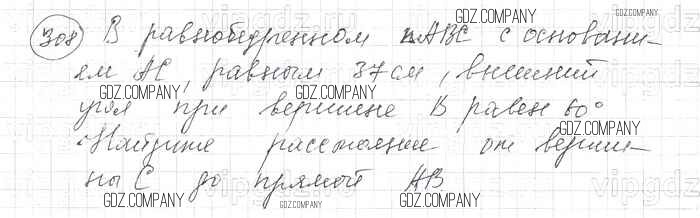 308 В равнобедренном △ABC с основани-
ем AC, равным 37 см, внешний
угол при вершине B равен 60°
Найдите расстояние от верши-
ны C до прямой AB
GDZ.COMPANY
GDZ.COMPANY
GDZ.COMPANY
GDZ.COMPANY
GDZ.COMPANY
GDZ.COMPANY
GDZ.COMPANY
GDZ.COMPANY
GDZ.COMPANY
vipgdz.ru